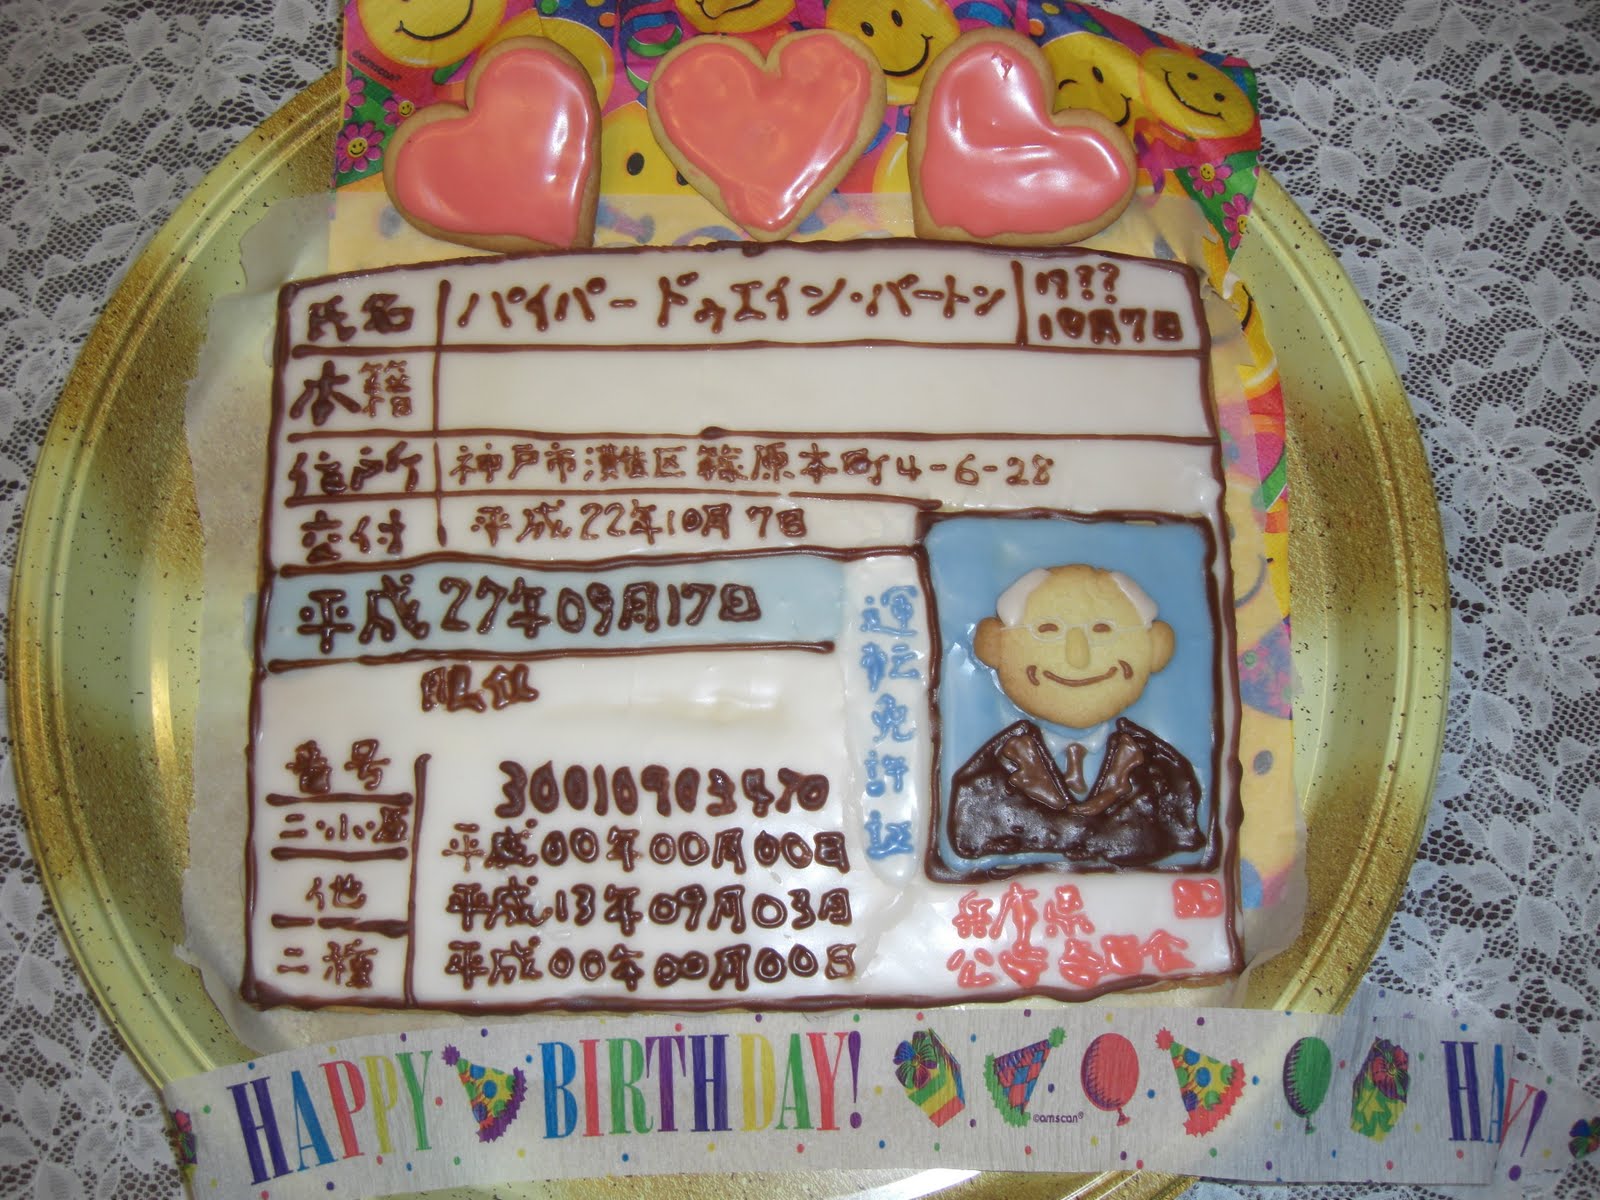 ©amscan®
氏名 パイパー ドゥエイン・バートン 17??
10月7日
本籍
住所 神戸市灘区篠原本町4-6-28
交付 平成22年10月7日
平成27年09月17日
運転免許証
番号 30010903470
二・小・原 平成00年00月00日
他 平成13年09月03日
二種 平成00年00月00日
兵庫県
公安委員会
HAPPY BIRTHDAY! HAY!
©amscan®